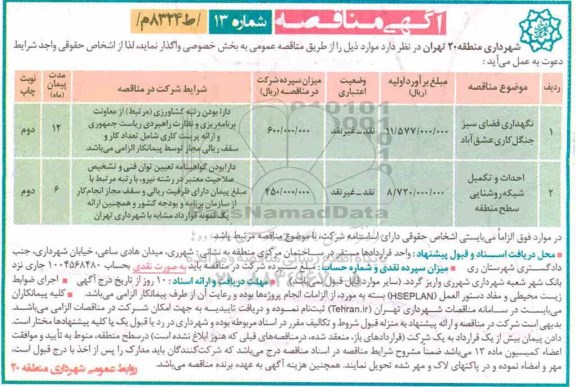 آگهی مناقصه
شماره ۱۳
/ط۸۳۲۴/م
شهرداری منطقه۲۰ تهران در نظر دارد موارد ذیل را از طریق مناقصه عمومی به بخش خصوصی واگذار نماید، لذا از اشخاص حقوقی واجد شرایط
دعوت به عمل می‌آید:
ردیف موضوع مناقصه مبلغ برآورد اولیه (ریال) وضعیت اعتباری میزان سپرده شرکت در مناقصه (ریال) شرایط شرکت در مناقصه مدت پیمان (ماه) نوبت چاپ
۱ نگهداری فضای سبز جنگل‌کاری عشق‌آباد ۱۱/۵۷۷/۰۰۰/۰۰۰ نقد ـ غیرنقد ۶۰۰/۰۰۰/۰۰۰ دارا بودن رتبه کشاورزی (مرتبط) از معاونت برنامه‌ریزی و نظارت راهبردی ریاست جمهوری و ارائه پرینت کاری شامل تعداد کار و سقف ریالی مجاز توسط پیمانکار الزامی می‌باشد. ۱۲ دوم
۲ احداث و تکمیل شبکه روشنایی سطح منطقه ۸/۷۲۰/۰۰۰/۰۰۰ نقد ـ غیرنقد ۴۵۰/۰۰۰/۰۰۰ دارا بودن گواهینامه تعیین توان فنی و تشخیص صلاحیت معتبر در رشته نیرو، با رتبه مرتبط با مبلغ پیمان دارای ظرفیت ریالی و سقف مجاز انجام کار از سازمان برنامه و بودجه کشور و همچنین ارائه یک نمونه قرارداد مشابه با شهرداری تهران ۶ دوم
در موارد فوق الزاماً می‌بایستی اشخاص حقوقی دارای اساسنامه شرکت، با موضوع مناقصه مرتبط باشد.
محل دریافت اسناد و قبول پیشنهاد: واحد قراردادها مستقر در ساختمان مرکزی منطقه به نشانی: شهرری، میدان هادی ساعی، خیابان شهرداری، جنب
دادگستری شهرستان ری میزان سپرده نقدی و شماره حساب: مبلغ سپرده شرکت در مناقصه باید به صورت نقدی بحساب ۱۰۰۴۵۶۸۴۸۰ جاری نزد
بانک شهر شعبه شهرداری شهرری واریز گردد. (سایر موارد قابل قبول نمی‌باشد.) مهلت دریافت و ارائه اسناد: ۱۰ روز از تاریخ درج آگهی اجرای ضوابط
زیست محیطی و مفاد دستور العمل (HSEPLAN) بسته به مورد، از الزامات انجام پروژه‌ها بوده و رعایت آن از طرف پیمانکار الزامی می‌باشد. کلیه پیمانکاران
می‌بایست در سامانه مناقصات شهرداری تهران (Tehran.ir) ثبت‌نام نموده و دریافت تاییدیه به جهت امکان شرکت در مناقصات الزامی می‌باشد.
بدیهی است شرکت در مناقصه و ارائه پیشنهاد به منزله قبول شروط و تکالیف مقرر در اسناد مربوطه بوده و شهرداری در رد یا قبول یک یا کلیه پیشنهادها مختار است.
دادن پیمان بیش از یک قرارداد به یک شرکت (قراردادهای باز، منعقد شده، درمناقصه‌های قبلی که هنوز ابلاغ نشده است) درسطح منطقه، منوط به تأیید و موافقت
اعضاء کمیسیون ماده ۱۳ می‌باشد ضمناً مشروح شرایط مناقصه در اسناد مناقصه درج می‌باشد که شرکت‌کنندگان باید مدارک را پس از اخذ با درج قبول است،
مهر و امضاء نموده و در پاکتهای لاک و مهر شده تحویل نمایند. همچنین هزینه آگهی به عهده برنده مناقصه می‌باشد.
روابط عمومی شهرداری منطقه ۲۰